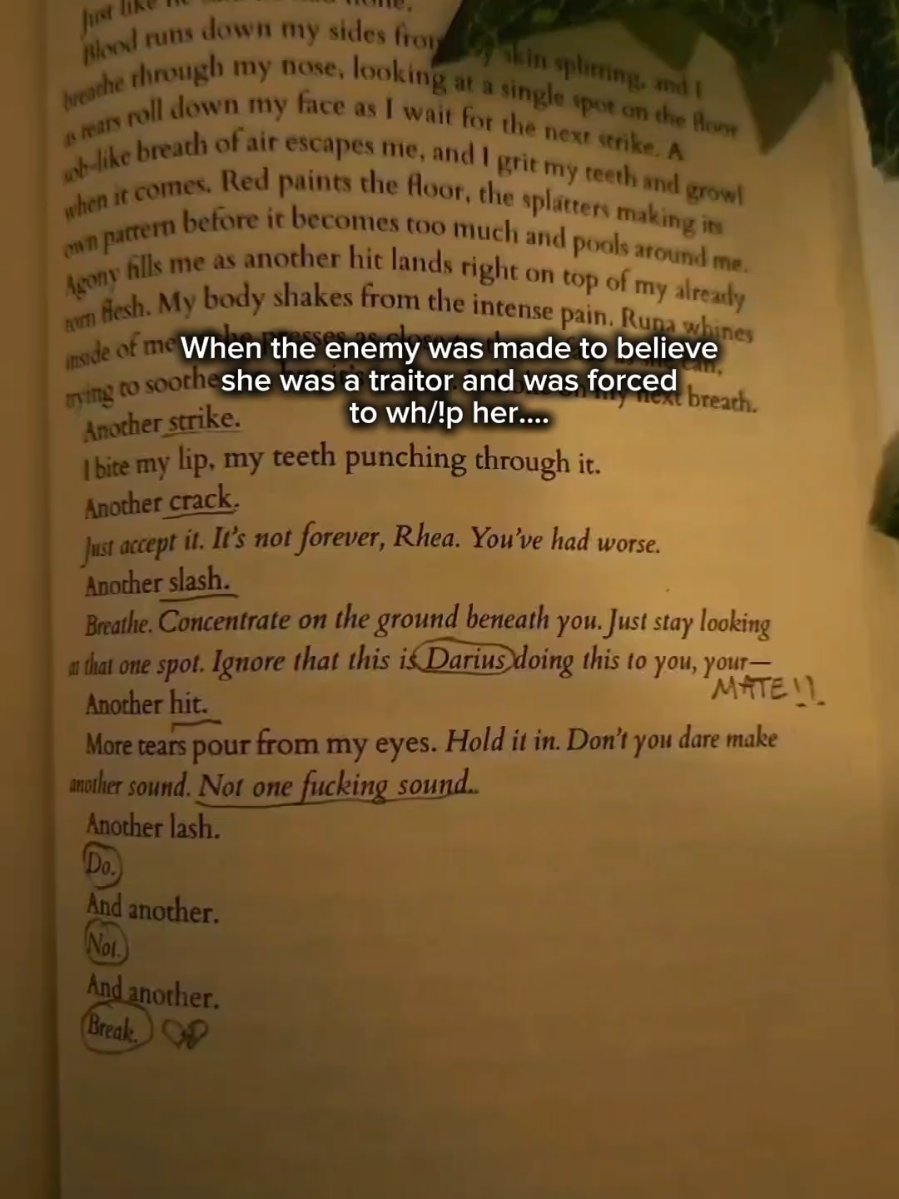 Just like
Blood runs down my sides from my skin splitting, and I
breathe through my nose, looking at a single spot on the floor
as tears roll down my face as I wait for the next strike. A
sob-like breath of air escapes me, and I grit my teeth and growl
when it comes. Red paints the floor, the splatters making its
own pattern before it becomes too much and pools around me.
Agony fills me as another hit lands right on top of my already
torn flesh. My body shakes from the intense pain. Runa whines
inside of me presses as close can,
When the enemy was made to believe
trying to soothe my next breath.
she was a traitor and was forced
to wh/!p her....
Another strike.
I bite my lip, my teeth punching through it.
Another crack.
Just accept it. It's not forever, Rhea. You've had worse.
Another slash.
Breathe. Concentrate on the ground beneath you. Just stay looking
at that one spot. Ignore that this is Darius doing this to you, your—
MATE!!
Another hit.
More tears pour from my eyes. Hold it in. Don't you dare make
another sound. Not one fucking sound..
Another lash.
Do.
And another.
Not.
And another.
Break.